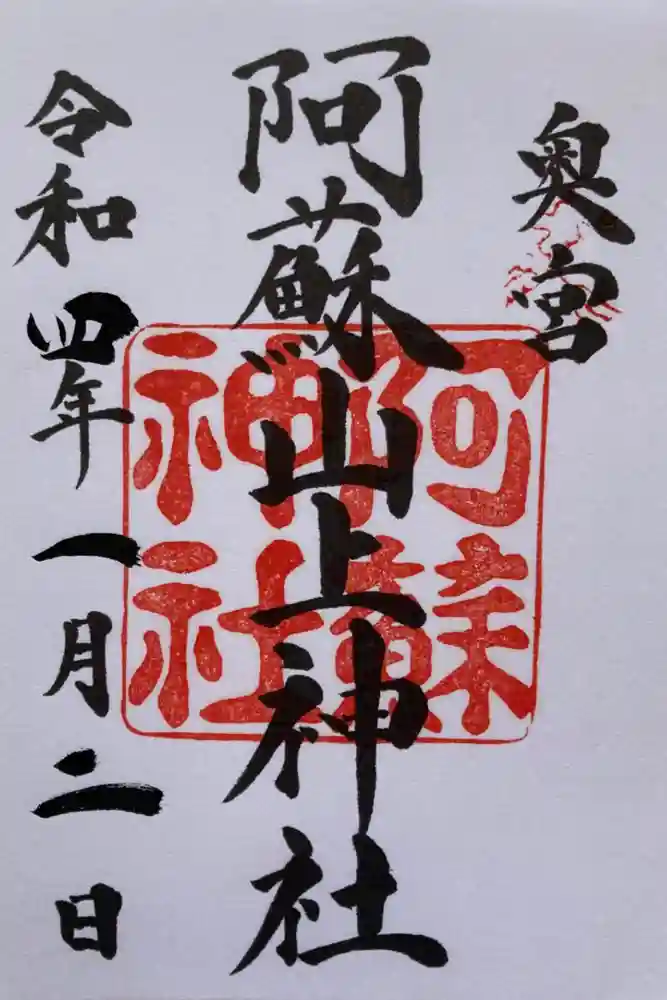 奥宮
阿蘇山上神社
阿蘇
神社
令和四年一月二日